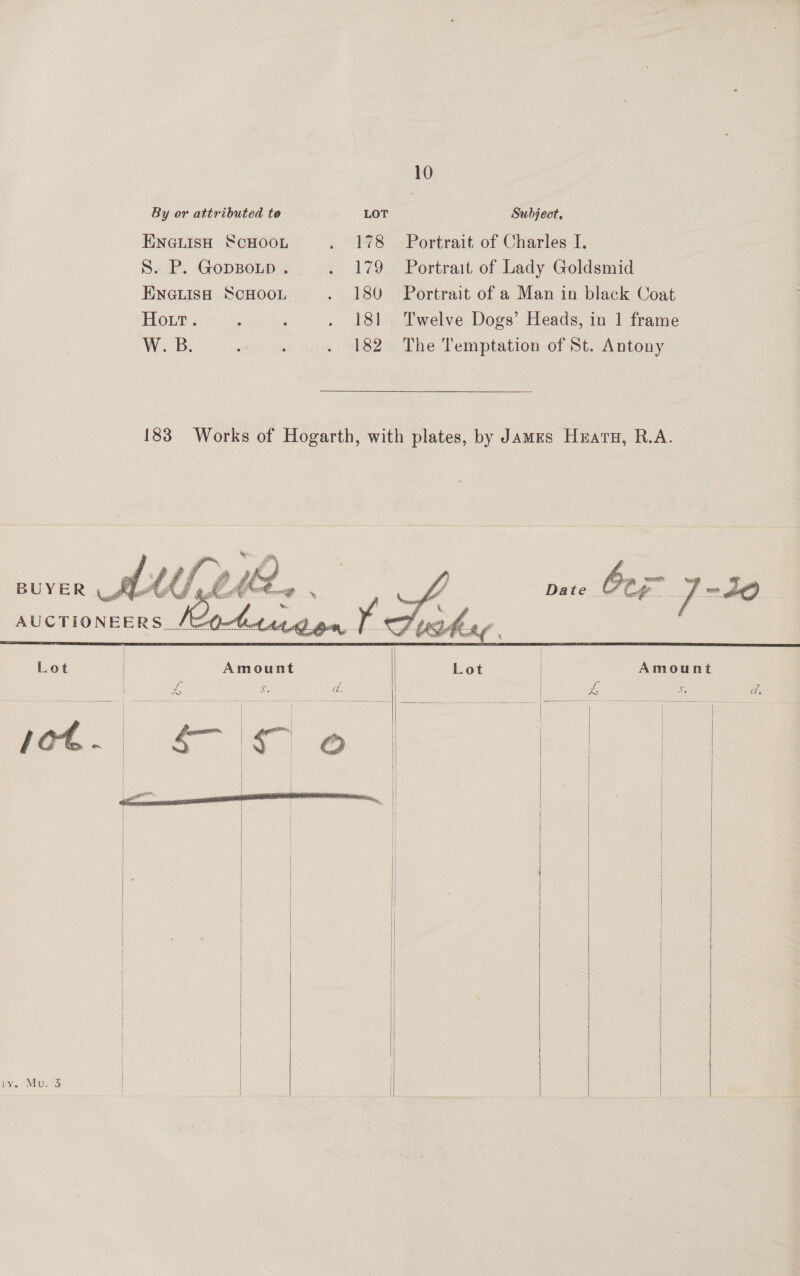 10
By or attributed to LOT Subject.
ENGLISH SCHOOL . 178 Portrait of Charles I.
S. P. GODBOLD . . 179 Portrait of Lady Goldsmid
ENGLISH SCHOOL . 180 Portrait of a Man in black Coat
HOLT . . . . 181 Twelve Dogs’ Heads, in 1 frame
W. B. . . . 182 The Temptation of St. Antony
183 Works of Hogarth, with plates, by JAMES HEATH, R.A.
BUYER Date Oct 7-20
AUCTIONEERS Robinson & Fisher.
Lot Amount Lot Amount
£ s. d. £ s. d.
106. 5 5 0
iv. Mu. 3